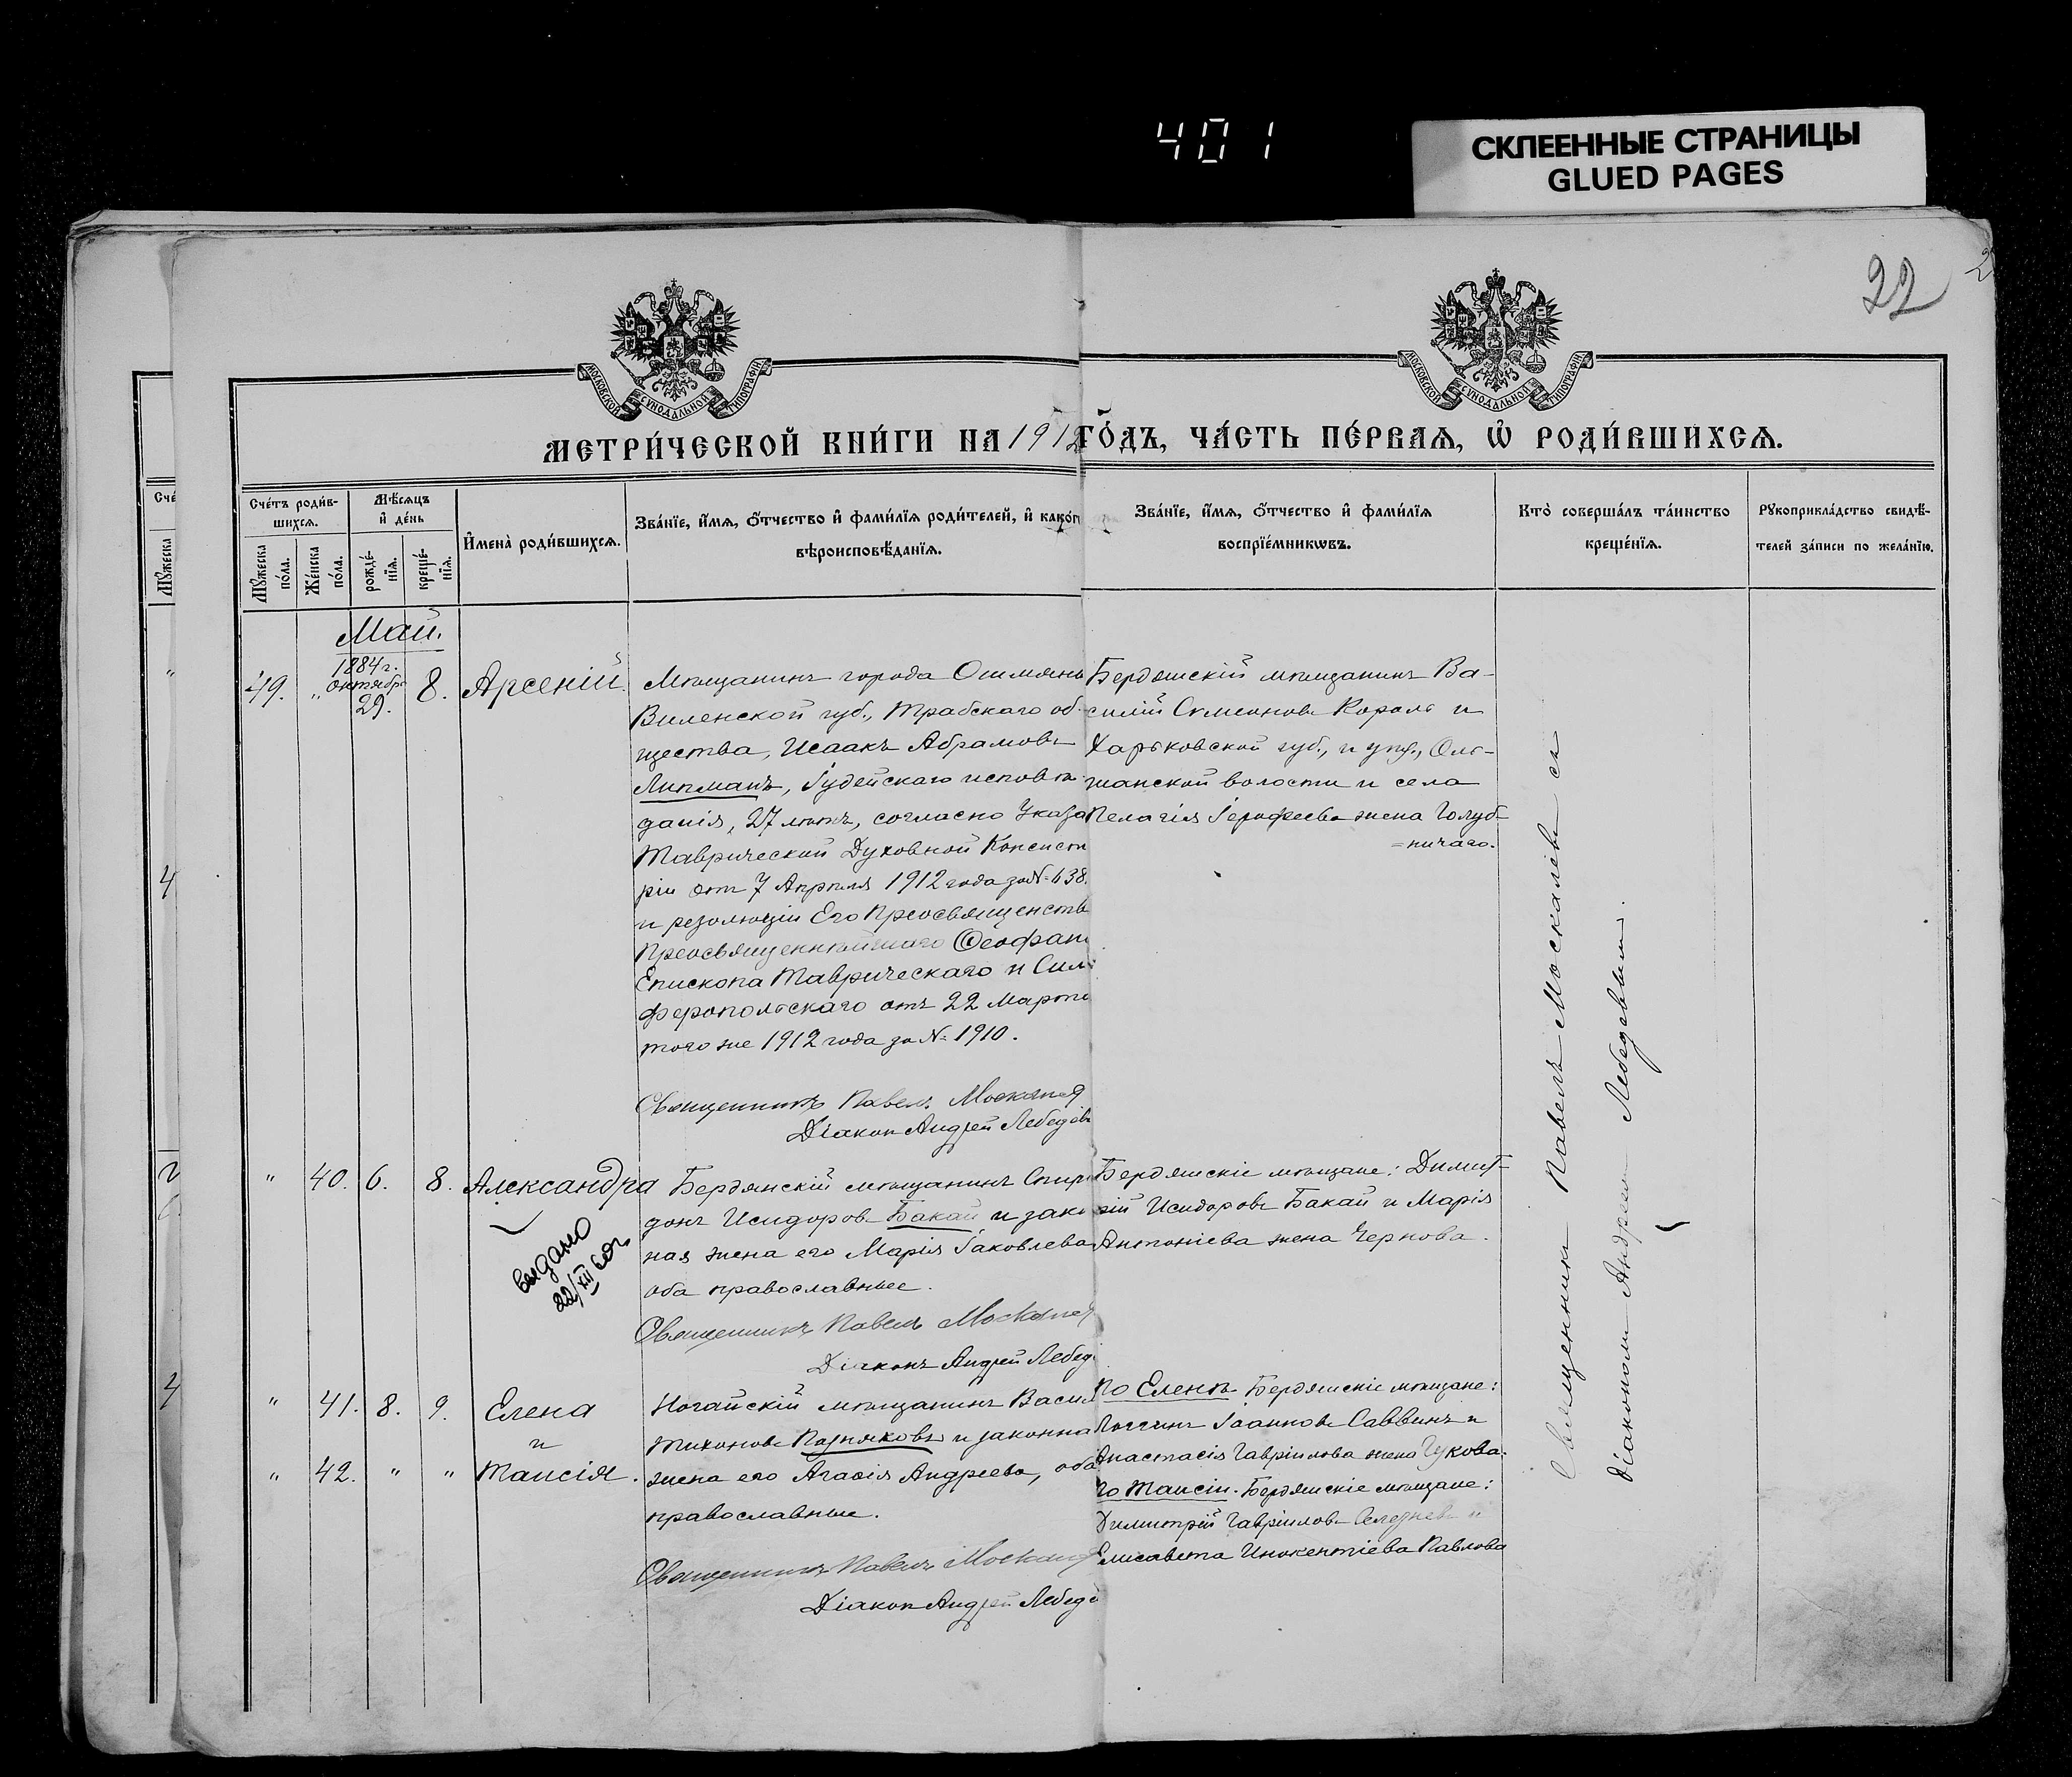 401
СКЛЕЕННЫЕ СТРАНИЦЫ
GLUED PAGES
22
МОСКОВСКОЙ СѴНОДАЛЬНОЙ ТИПОГРАФІИ
МОСКОВСКОЙ СѴНОДАЛЬНОЙ ТИПОГРАФІИ
МЕТРИ́ЧЕСКОЙ КНИ́ГИ НА 1912 ГО́ДЪ, ЧА́СТЬ ПЕ́РВАѦ, Ѡ҆ РОДИ́ВШИХСѦ.
Сче́тъ роди́в-
шихсѧ.
Мѣ́сѧцъ
и҆ де́нь
Мꙋ́жеска
по́ла.
Же́нска
по́ла.
рожде́-
нїѧ.
креще́-
нїѧ.
И҆мена̀ роди́вшихсѧ.
Зва́нїе, и҆́мѧ, ѻ҆́тчество и҆ фами́лїѧ роди́телей, и҆ како́г
вѣроисповѣ́данїѧ.
Зва́нїе, и҆́мѧ, ѻ҆́тчество и҆ фами́лїѧ
воспрїе́мникѡвъ.
Кто̀ соверша́лъ та́инство
креще́нїѧ.
Рꙋкоприкла́дство свидѣ́-
телей за́писи по жела́нїю.
Май.
49. " 1884 г. октября 29. 8. Арсеній.
Мѣщанинъ города Ошмяны
Виленской губ., Трабскаго об-
щества, Исаакъ Абрамовъ
Липманъ, Іудейскаго исповѣ-
данія, 27 лѣтъ, согласно Указа
Таврической Духовной Консисто
ріи отъ 7 Апрѣля 1912 года за № 638.
и резолюціи Его Преосвященств
Преосвященнѣйшаго Ѳеофан
Епископа Таврическаго и Сим
феропольскаго отъ 22 Марта
того же 1912 года за № 1910.
Священникъ Павелъ Москалев
Діаконъ Андрей Лебедевъ
Бердянскій мѣщанинъ Ва-
силій Симеоновъ Король и
Харьковской губ., и уѣз., Оль-
шанской волости и села
Пелагія Іерофеева жена Голуб-
=ничаго.
" 40. 6. 8. Александра
выдано
22/XII 60г
Бердянскій мѣщанинъ Спири
донъ Исидоровъ Бакай и закон
ная жена его Марія Іаковлева
оба православные.
Священникъ Павелъ Москалев
Діаконъ Андрей Лебед
Бердянскіе мѣщане: Димит-
рій Исидоровъ Бакай и Марія
Антоніева жена Чернова.
" 41. 8. 9. Елена
и
" 42. " " Таисія.
Ногайскій мѣщанинъ Васил
Тихоновъ Позняковъ и законна
жена его Агафія Андреева, оба
православные.
Священникъ Павелъ Москалев
Діаконъ Андрей Лебеде
По Еленѣ Бердянскіе мѣщане:
Логгинъ Іоанновъ Саввинъ и
Анастасія Гавріилова жена Чукова.
По Таисіи. Бердянскіе мѣщане:
Димитрій Гавріиловъ и
Елисавета Инокентіева Павлова
Священникъ Павелъ Москалевъ съ
діакономъ Андреемъ Лебедевымъ.